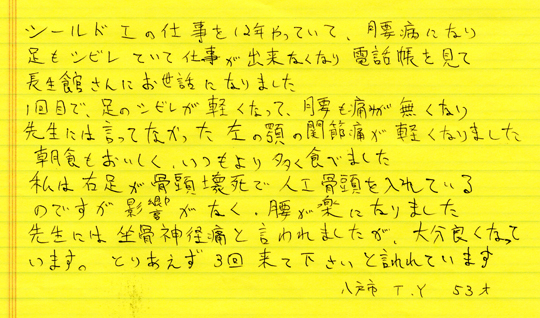 シールド工の仕事を12年やっていて、腰痛になり
足もシビレていて仕事が出来なくなり電話帳を見て
長生館さんにお世話になりました
1回目で、足のシビレが軽くなって、腰も痛みが無くなり
先生には言ってなかった左の顎の関節痛が軽くなりました
朝食もおいしく、いつもより多く食べました
私は右足が骨頭壊死で人工骨頭を入れている
のですが影響がなく、腰が楽になりました
先生には坐骨神経痛と言われましたが、大分良くなって
います。とりあえず3回来て下さいと言われています
八戸市 T.Y 53才